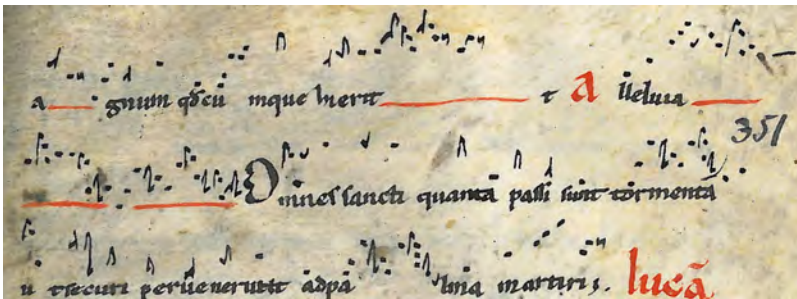 a gnum qđcū mque hierit t A lleluia
351
Omnes sancti quantā passi sunt tormenta
u t securi peruenerunt adpā lmā martirii. lucā